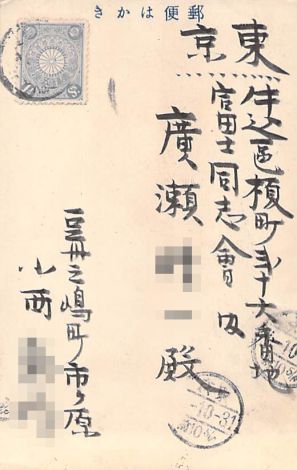 きかは便郵
東京
牛込區榎町弐十六番地
富士同志會内
廣瀬 一殿
豆州三嶋町市ヶ原
小西